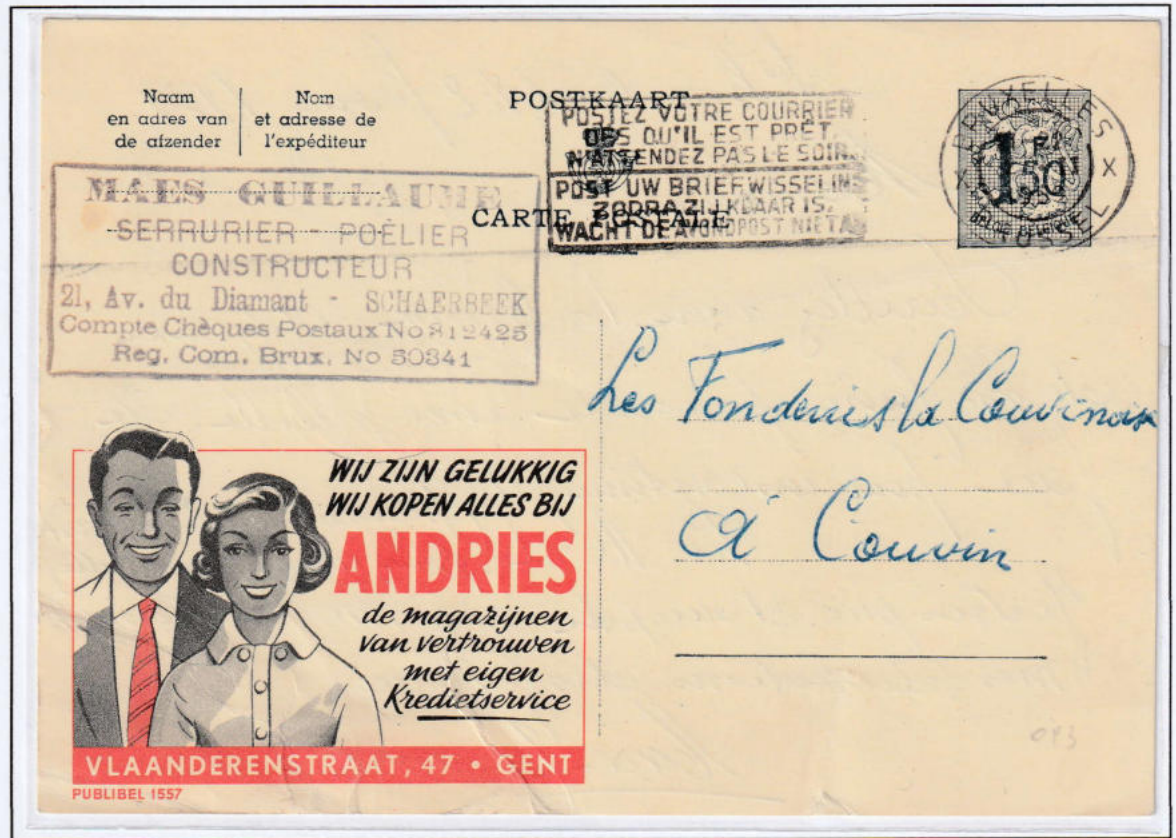 Naam
en adres van
de afzender
Nom
et adresse de
l'expéditeur
POSTKAART
CARTE POSTALE
POSTEZ VOTRE COURRIER
DES QU'IL EST PRÊT.
N'ATTENDEZ PAS LE SOIR.
POST UW BRIEFWISSELING
ZODRA ZIJ KLAAR IS.
WACHT DE AVONDPOST NIET AF
BRUXELLES X
BRUSSEL X
1 FR 50
BELGIE BELGIQUE
MAES GUILLAUME
SERRURIER - POÊLIER
CONSTRUCTEUR
21, Av. du Diamant - SCHAERBEEK
Compte Chèques Postaux No 812425
Reg. Com. Brux. No 50341
Les Fonderies la Couvinoise
à Couvin
WIJ ZIJN GELUKKIG
WIJ KOPEN ALLES BIJ
ANDRIES
de magazijnen
van vertrouwen
met eigen
Kredietservice
VLAANDERENSTRAAT, 47 • GENT
PUBLIBEL 1557